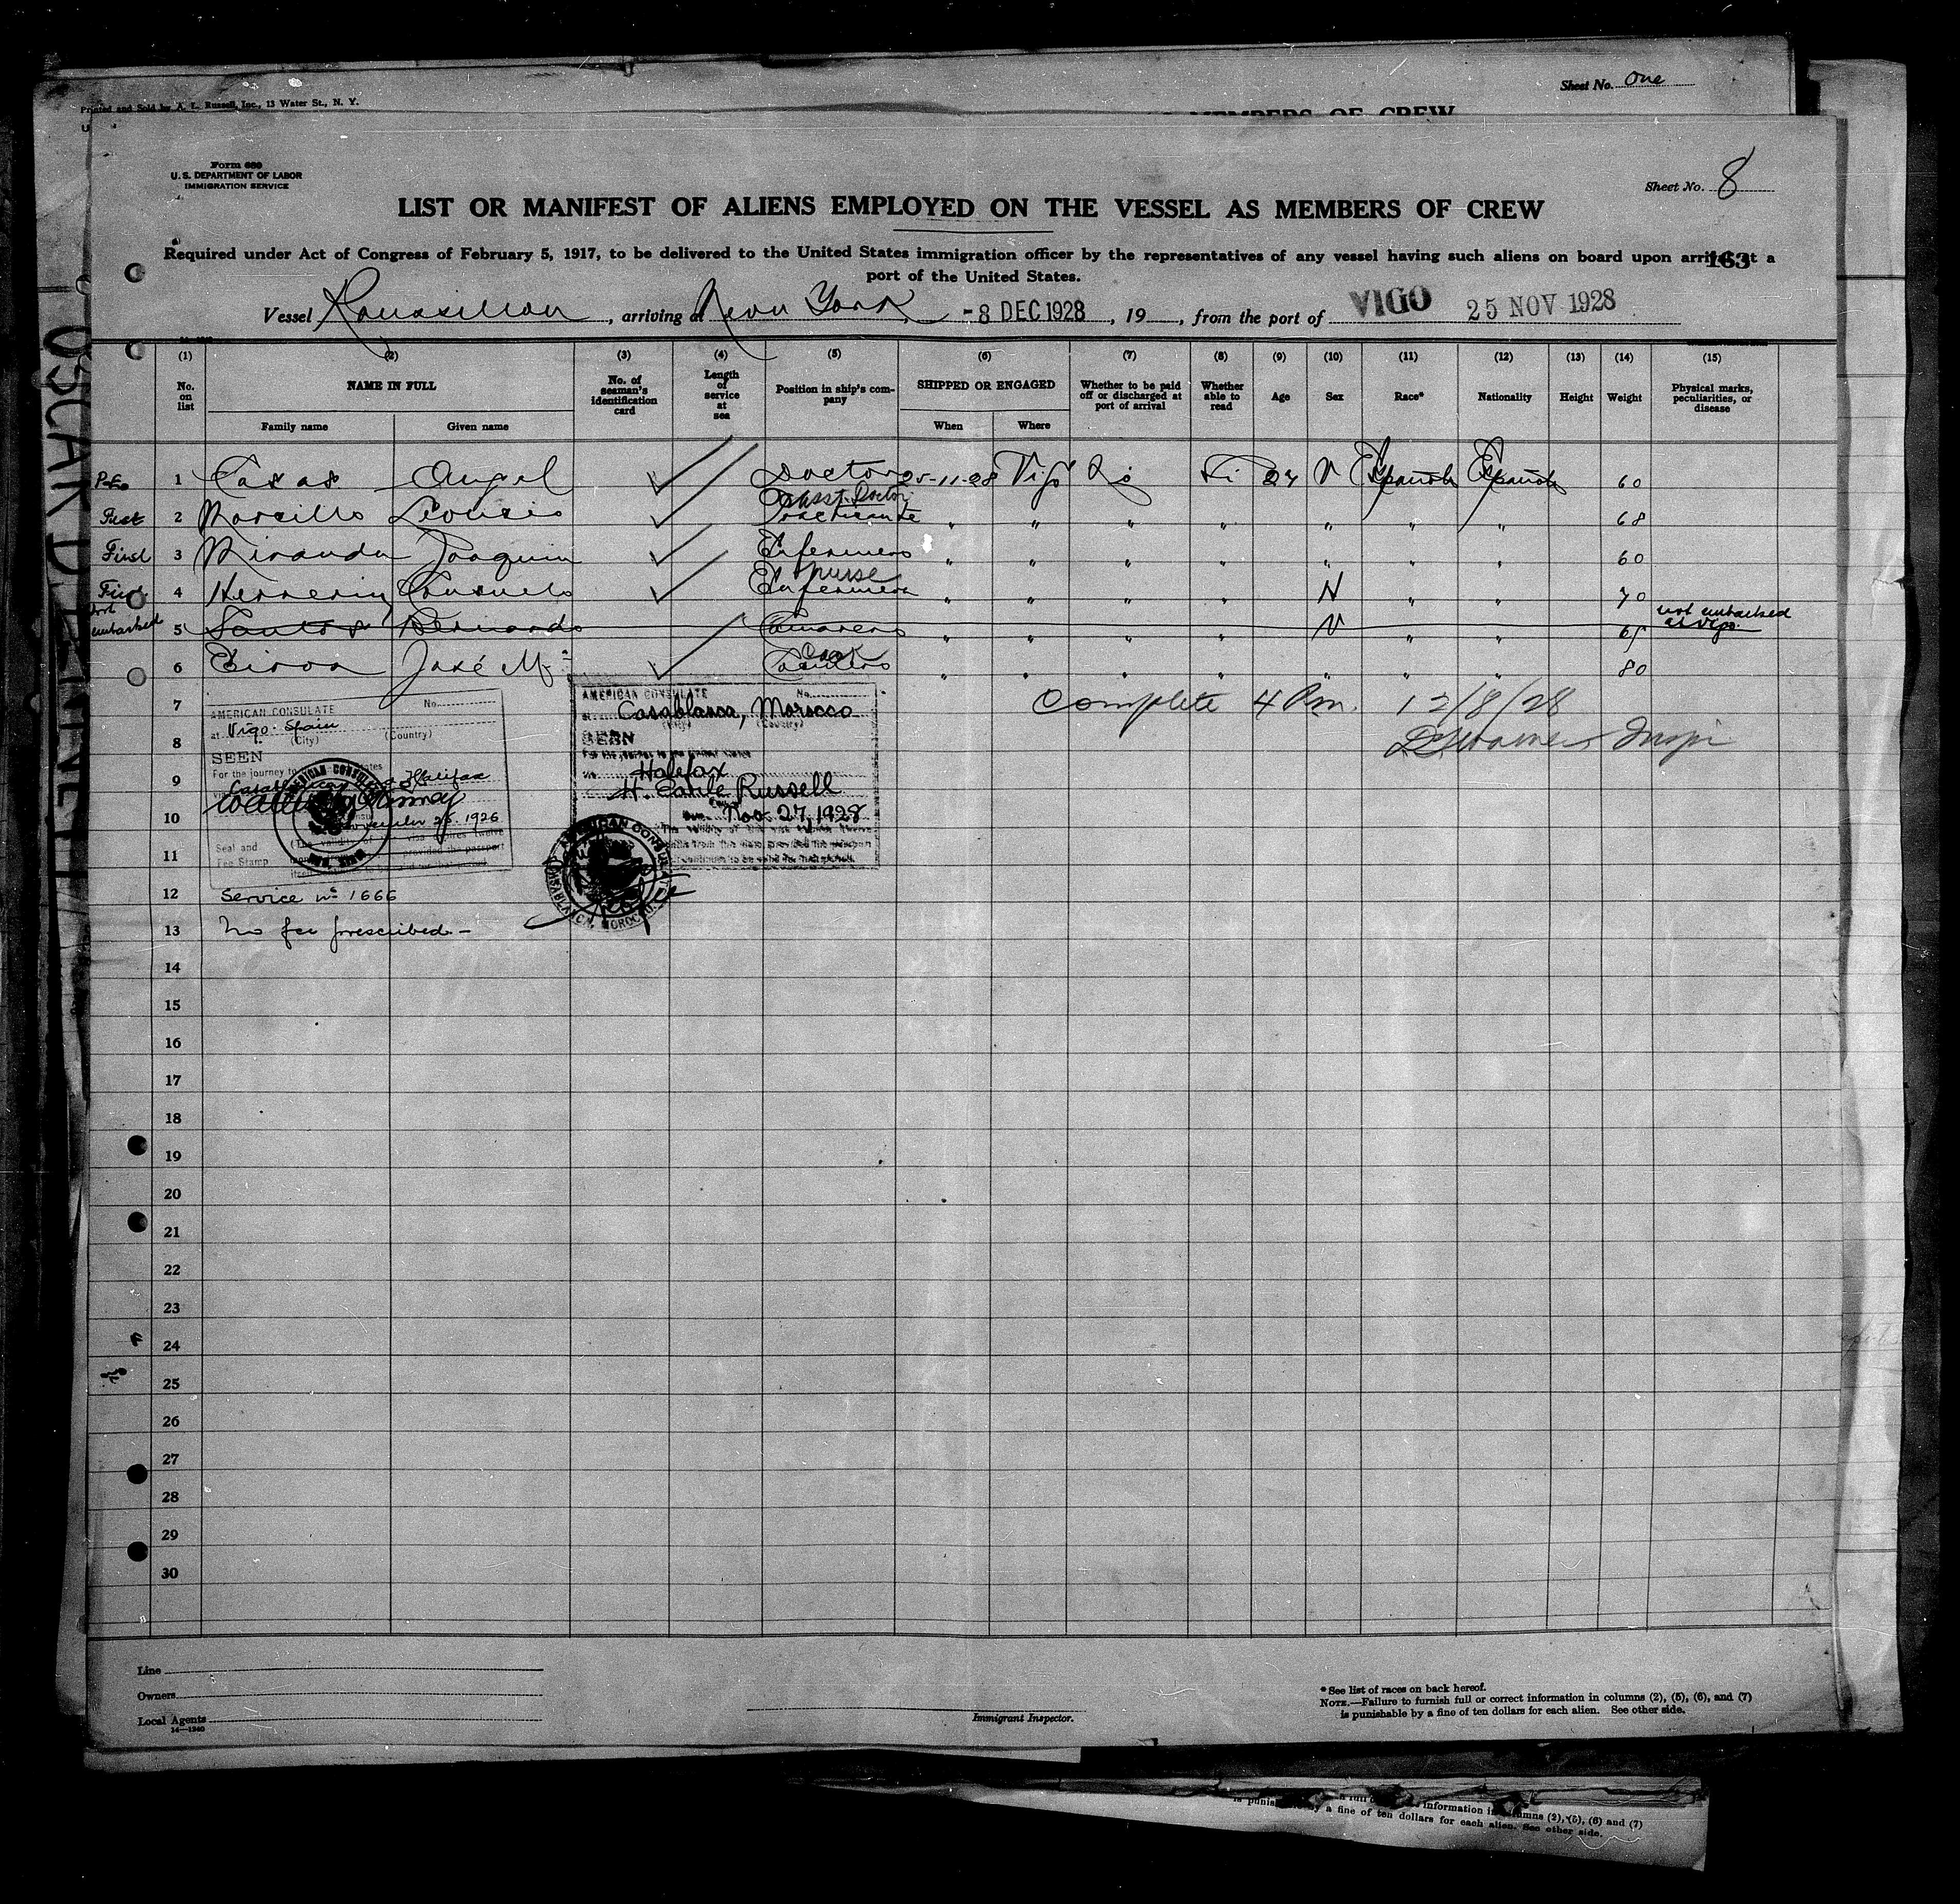 Sheet No. One
Printed and Sold by A. L. Russell, Inc., 13 Water St., N. Y.
MEMBERS OF CREW
Form 680
U. S. DEPARTMENT OF LABOR
IMMIGRATION SERVICE
Sheet No. 8
LIST OR MANIFEST OF ALIENS EMPLOYED ON THE VESSEL AS MEMBERS OF CREW
Required under Act of Congress of February 5, 1917, to be delivered to the United States immigration officer by the representatives of any vessel having such aliens on board upon arrival at a
163
port of the United States.
Vessel Roussillon, arriving at New York -8 DEC 1928, 19, from the port of VIGO 25 NOV 1928
(1) (2) (3) (4) (5) (6) (7) (8) (9) (10) (11) (12) (13) (14) (15)
No. on list NAME IN FULL No. of seaman's identification card Length of service at sea Position in ship's company SHIPPED OR ENGAGED Whether to be paid off or discharged at port of arrival Whether able to read Age Sex Race* Nationality Height Weight Physical marks, peculiarities, or disease
Family name Given name When Where
1 Casas Angel Doctor 25-11-28 Vigo Si V Español Español 60
Asst. Doctor
First 2 Leoncio Practicante " " " " " " " 68
First 3 Miranda Joaquin Enfermero " " " " " " " 60
nurse
First 4 Consuelo Enfermera " " " " H " " 70
not embarked 5 Santos Bernardo Camarero " " " " V " " 65 not embarked at Vigo.
Cook
6 José Mª " " " " " " " 80
7 Complete 4 Pm. 12/8/28
8 Inspr
9
10
11
12 Service nº 1666
13 No fee prescribed -
AMERICAN CONSULATE No.
at Vigo. Spain
(City) (Country)
SEEN
For the journey to
Casablanca Halifax
November 25. 1926
Seal and
Fee Stamp
AMERICAN CONSULATE No.
at Casablanca, Morocco
(City) (Country)
SEEN
For the journey to the United States
via Halifax
H. Earle Russell
Nov. 27, 1928
AMERICAN CONSUL
CASABLANCA, MOROCCO
14
15
16
17
18
19
20
21
22
23
24
25
26
27
28
29
30
Line
Owners
Local Agents
14—1240
Immigrant Inspector.
* See list of races on back hereof.
NOTE.—Failure to furnish full or correct information in columns (2), (5), (6), and (7)
is punishable by a fine of ten dollars for each alien. See other side.
information in columns (2), (5), (6) and (7)
is punishable by a fine of ten dollars for each alien. See other side.